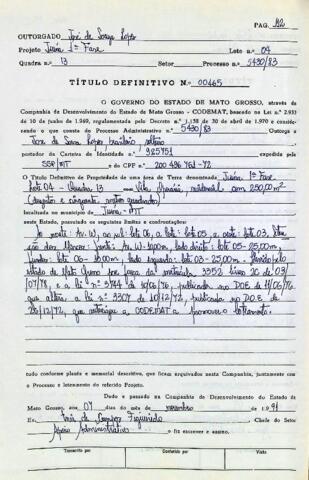 PAG. 112
OUTORGADO José de Souza Lopes
Projeto Juína 1ª Fase Lote n.o 04
Quadra n.o 13 Setor Processo n.o 5430/83
TÍTULO DEFINITIVO N.o 00465
O GOVERNO DO ESTADO DE MATO GROSSO, através da
Companhia de Desenvolvimento do Estado de Mato Grosso - CODEMAT, baseado na Lei n.o 2.933
de 10 de junho de 1.969, regulamentada pelo Decreto n.o 1.138 de 20 de abril de 1.970 e considerando
o que consta do Processo Administrativo n.o 5430/83 Outorga a
José de Souza Lopes brasileiro solteiro
portador da Carteira de Identidade n.o 925751 expedida pela
SSP/MT e do CPF n.o 200 496 761-72
O Título Definitivo de Propriedade de uma área de Terra denominada Juína, 1ª Fase,
Lote 04 - Quadra 13 residencial com 250,00 m²
(duzentos e cinquenta metros quadrados)
localizada no município de Juína - MT
neste Estado, possuindo os seguintes limites e confrontações:
Ao norte: Av. W, ao sul: lote 06, a leste: lote 05, e oeste: lote 03,
Frente: Av. W - 10,00m, lado direito: lote 05 - 25,00m,
fundos: lote 06 - 10,00m, lado esquerdo: lote 03 - 25,00m.
estado de Mato Grosso por força da matrícula 3352 livro 20 de 03/
07/78, e a lei nº 3744 de 10/06/76, publicada no DOE de 11/06/76
que altera a lei nº 3307 de 18/12/72, publicada no D.O.E. de
26/12/72, que autoriza a CODEMAT a promover o loteamento.
tudo conforme planta e memorial descritivo, que ficam arquivados nesta Companhia, juntamente com
o Processo e loteamento do referido Projeto.
Dado e passado na Companhia de Desenvolvimento do Estado de
Mato Grosso, aos 07 dias do mês de novembro de 1991
Eu, José de Campos Figueiredo Chefe do Setor
Apoio Administrativo o fiz escrever e assino.
Transcrito por Conferido por Visto